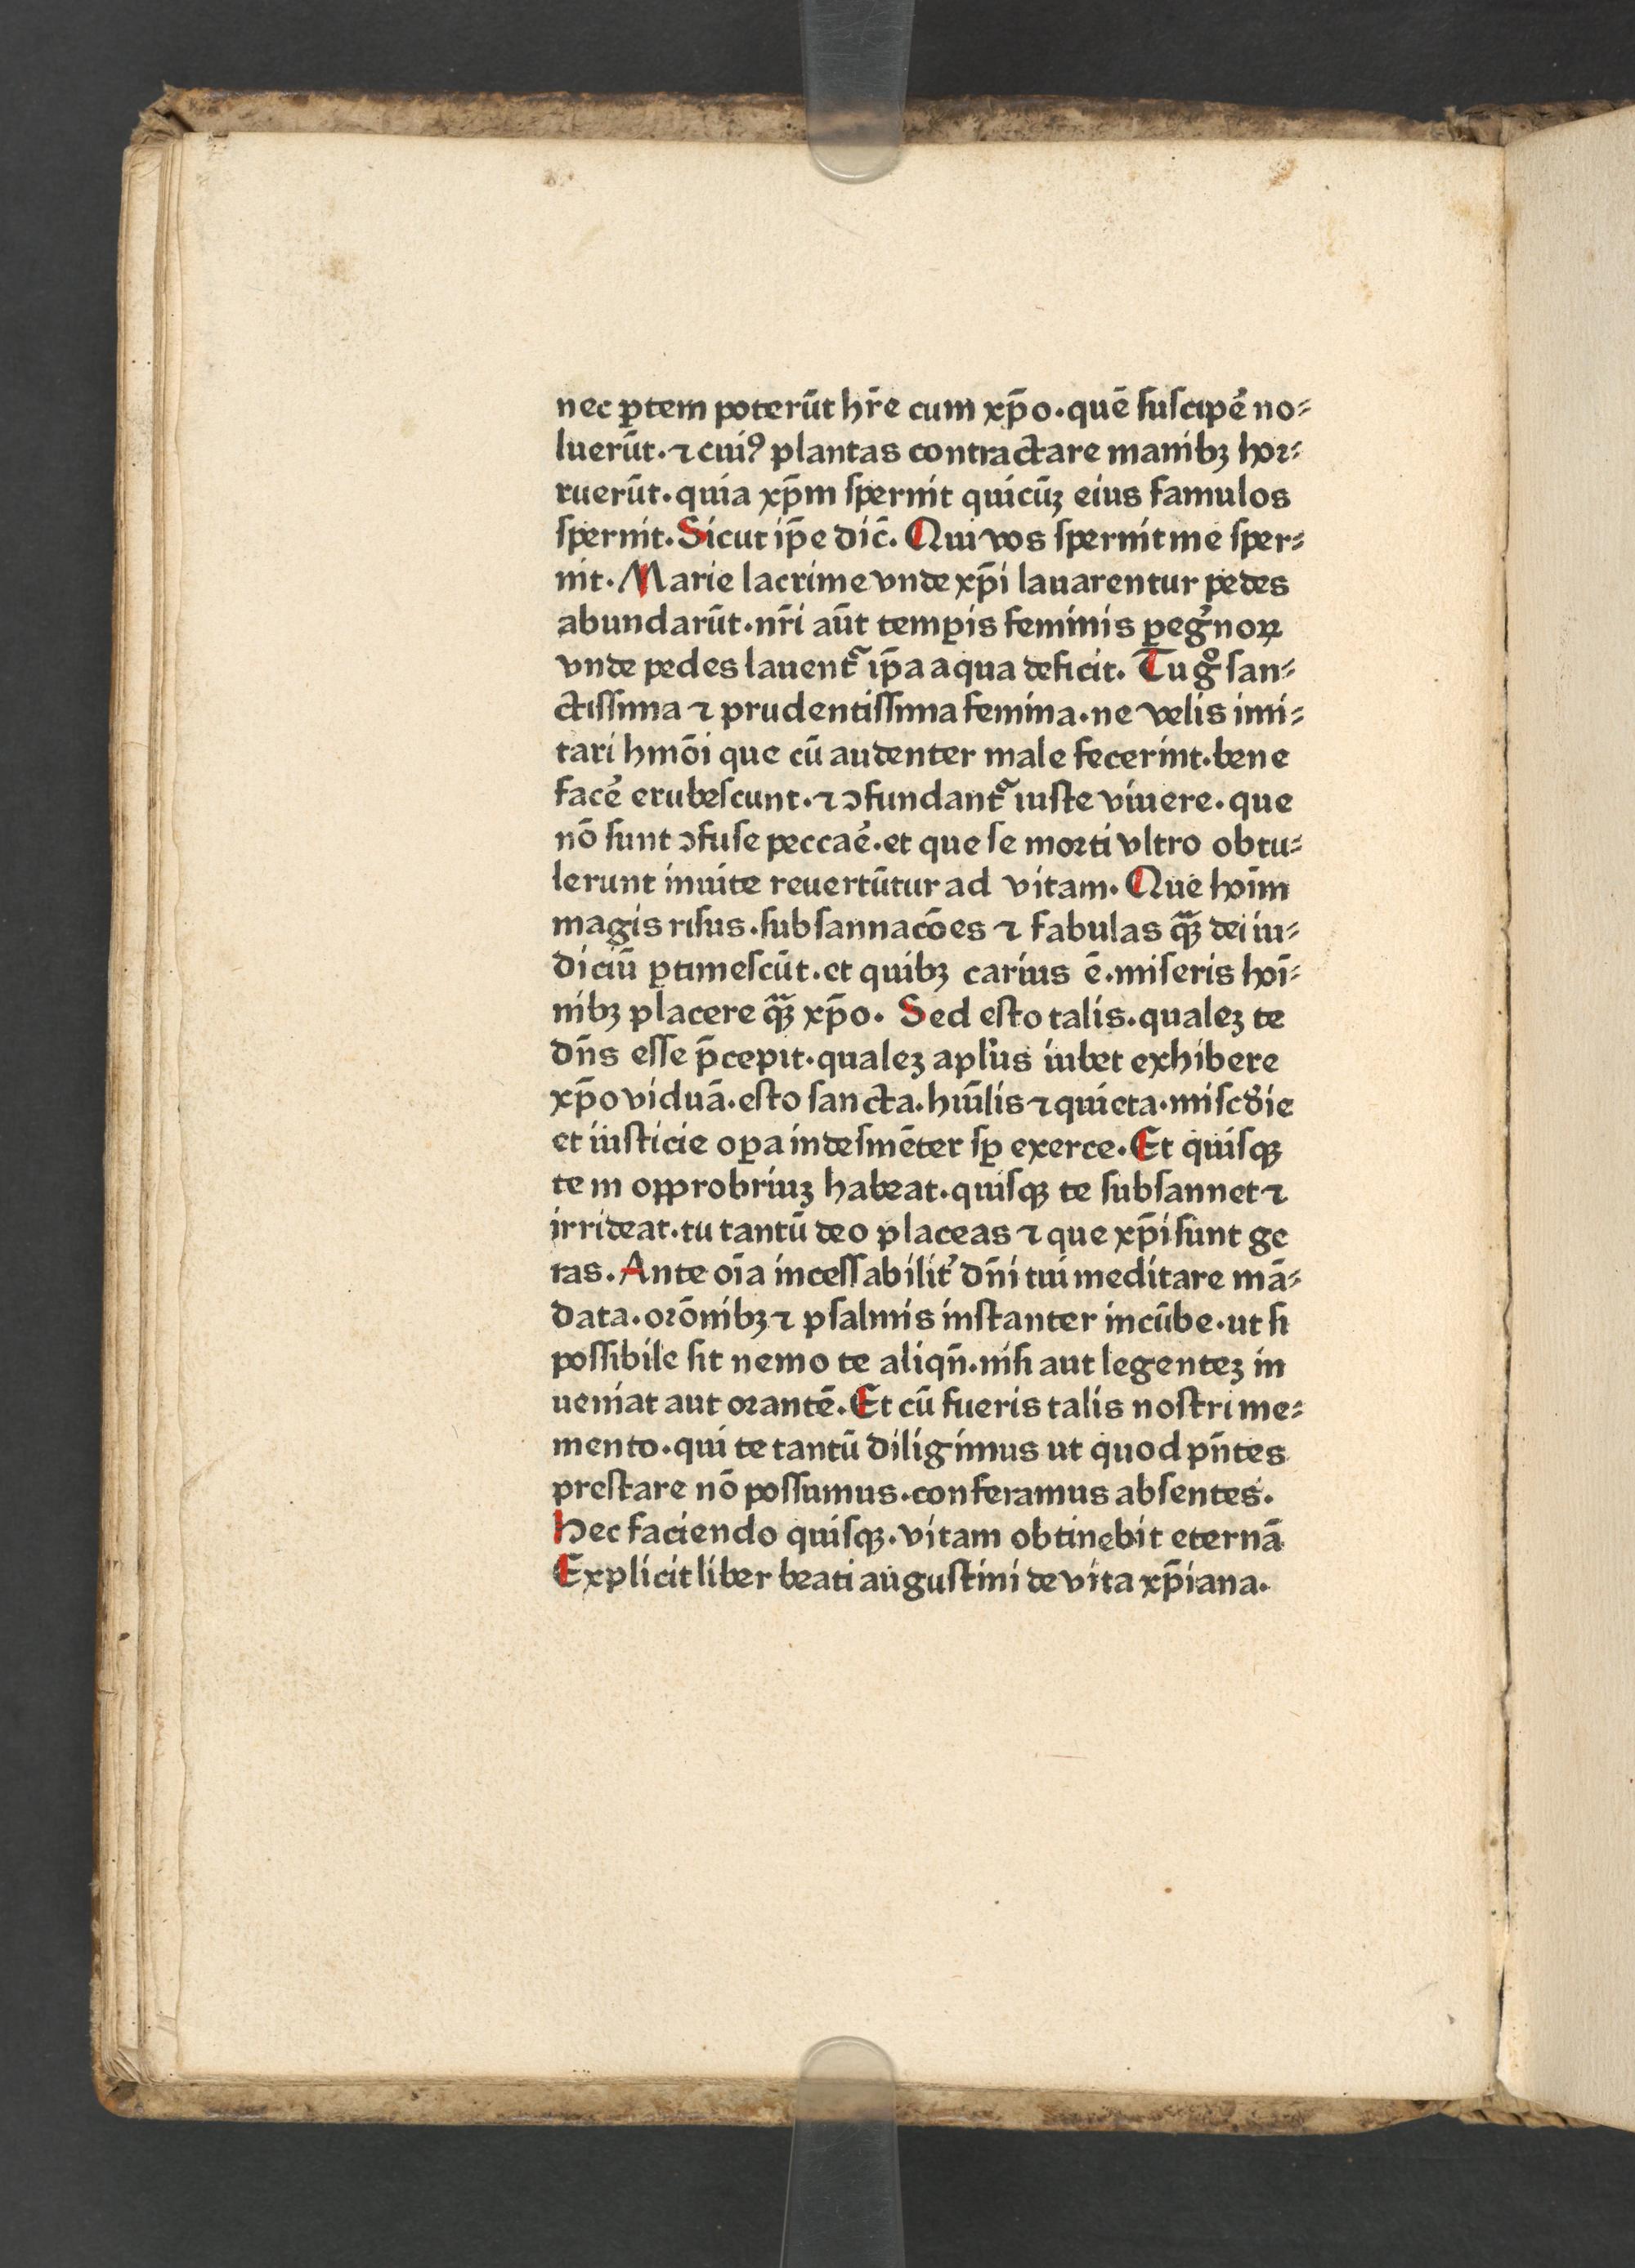 nec ꝑtem poterūt hr̄e cum xp̄o·quē suscipe᷑ no⸗
luerūt·⁊ cui⁹ plantas contractare manibꝫ hor⸗
ruerūt·quia xp̄m spernit quicūꝫ eius famulos
spernit. Sicut ip̄e dic̄. Qui vos spernit me sper⸗
nit· Marie lacrime vnde xp̄i lauarentur pedes
abundarūt·nr̄i aūt temꝑis feminis ꝑeg᷑noꝝ
vnde pedes lauent᷑ ip̄a aqua deficit. Tu gͦ san⸗
ctissima ⁊ prudentissima femina·ne velis imi⸗
tari hmōi que cū audenter male fecerint·bene
face᷑ erubescunt·⁊ ꝯfundant᷑ iuste viuere·que
nō sunt ꝯfuse peccae᷑·et que se morti vltro obtu⸗
lerunt inuite reuertūtur ad vitam. Que hoīm
magis risus·subsannacōes ⁊ fabulas qᷓꝫ dei iu⸗
diciū ꝑtimescūt·et quibꝫ carius ē·miseris hoī⸗
nibꝫ placere qᷓꝫ xp̄o· Sed esto talis·qualeꝫ te
dn̄s esse p̄cepit·qualeꝫ apl̓us iubet exhibere
xp̄o viduā·esto sancta·hūilis ⁊ quieta·misc̓die
et iusticie oꝑa indesinēter sꝑ exerce·Et quisqꝫ
te in opprobriuꝫ habeat·quisqꝫ te subsannet ⁊
irrideat·tu tantū deo placeas ⁊ que xp̄i sunt ge
ras. Ante oīa incessabilit᷑ dn̄i tui meditare mā⸗
data·orōnibꝫ ⁊ psalmis instanter incūbe·ut si
possibile sit nemo te aliqn̄·nisi aut legenteꝫ in
ueniat aut orantē. Et cū fueris talis nostri me⸗
mento·qui te tantū diligimus ut quod pn̄tes
prestare nō possumus·conferamus absentes.
Hec faciendo quisqꝫ·vitam obtinebit eternā
Explicit liber beati augustini de vita xp̄iana.